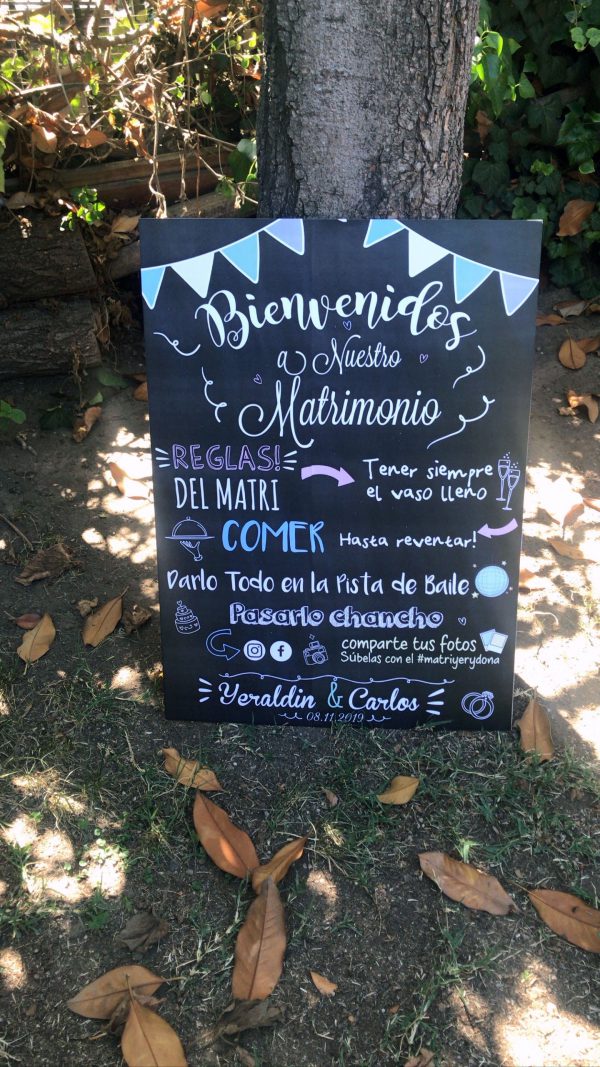 Bienvenidos
a Nuestro
Matrimonio
REGLAS!
DEL MATRI
Tener siempre
el vaso lleno
COMER Hasta reventar!
Darlo Todo en la Pista de Baile
Pasarlo chancho
comparte tus fotos
Súbelas con el #matriyerydona
Yeraldin & Carlos
08.11.2019